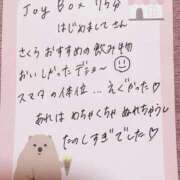 Joy Box 75分
はじめまして さん
さくら おすすめの飲み物
おいしかったデショ〜
スマタの体位... えぐかった♡
あれは めちゃくちゃ ぬれちゃうし
たのしすぎでした♡